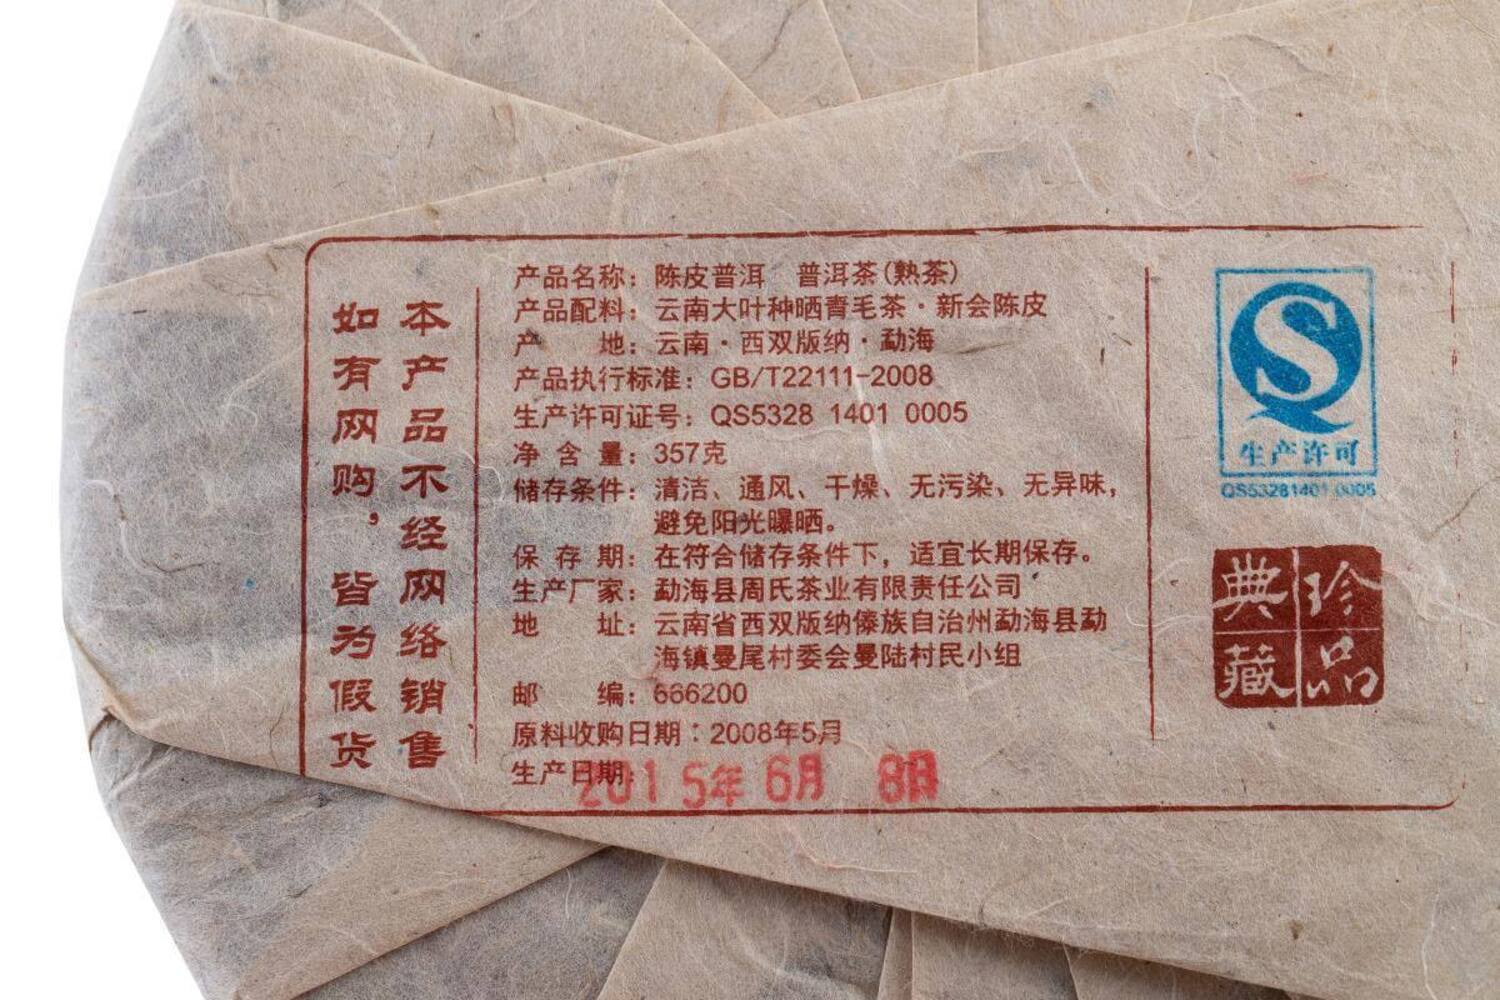 本产品不经网络销售
如有网购，皆为假货
产品名称：陈皮普洱 普洱茶(熟茶)
产品配料：云南大叶种晒青毛茶·新会陈皮
产 地：云南·西双版纳·勐海
产品执行标准：GB/T22111-2008
生产许可证号：QS5328 1401 0005
净 含 量：357克
储存条件：清洁、通风、干燥、无污染、无异味，
避免阳光曝晒。
保 存 期：在符合储存条件下，适宜长期保存。
生产厂家：勐海县周氏茶业有限责任公司
地 址：云南省西双版纳傣族自治州勐海县勐
海镇曼尾村委会曼陆村民小组
邮 编：666200
原料收购日期：2008年5月
生产日期：2015年6月 8日
生产许可
QS53281401 0005
珍品
典藏